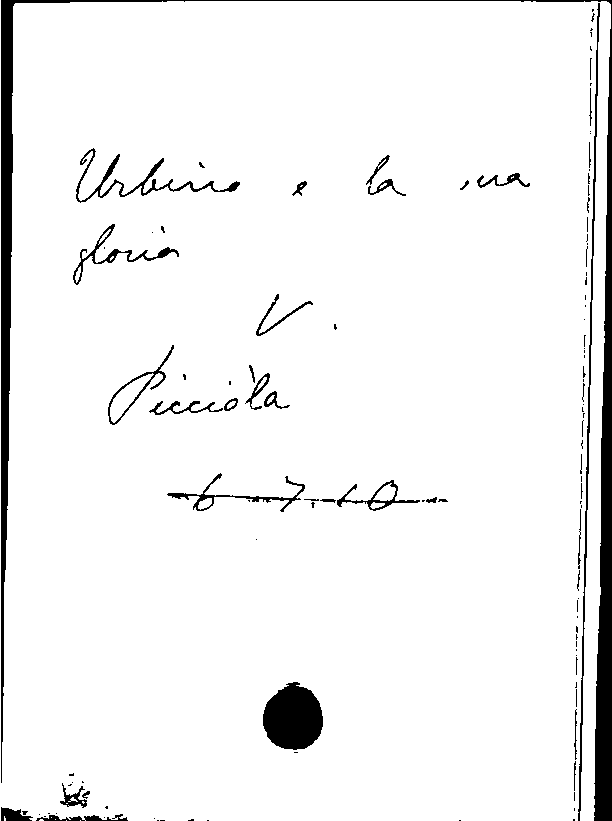 Urbino e la sua
gloria
V.
Picciòla
6.7.10